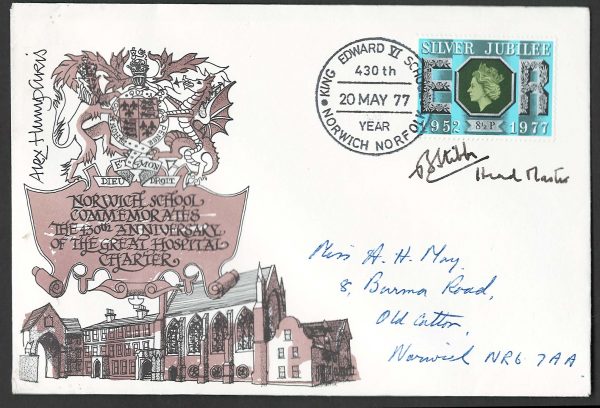 KING EDWARD VI SCHOOL
430th
20 MAY 77
YEAR
NORWICH NORFOLK
SILVER JUBILEE
E R
1952 8½P 1977
Head Master
ET MON
DIEU DROIT
NORWICH SCHOOL
COMMEMORATES
THE 430th ANNIVERSARY
OF THE GREAT HOSPITAL
CHARTER
Miss A. H. May,
8, Burma Road,
Old Catton,
Norwich NR6 7AA